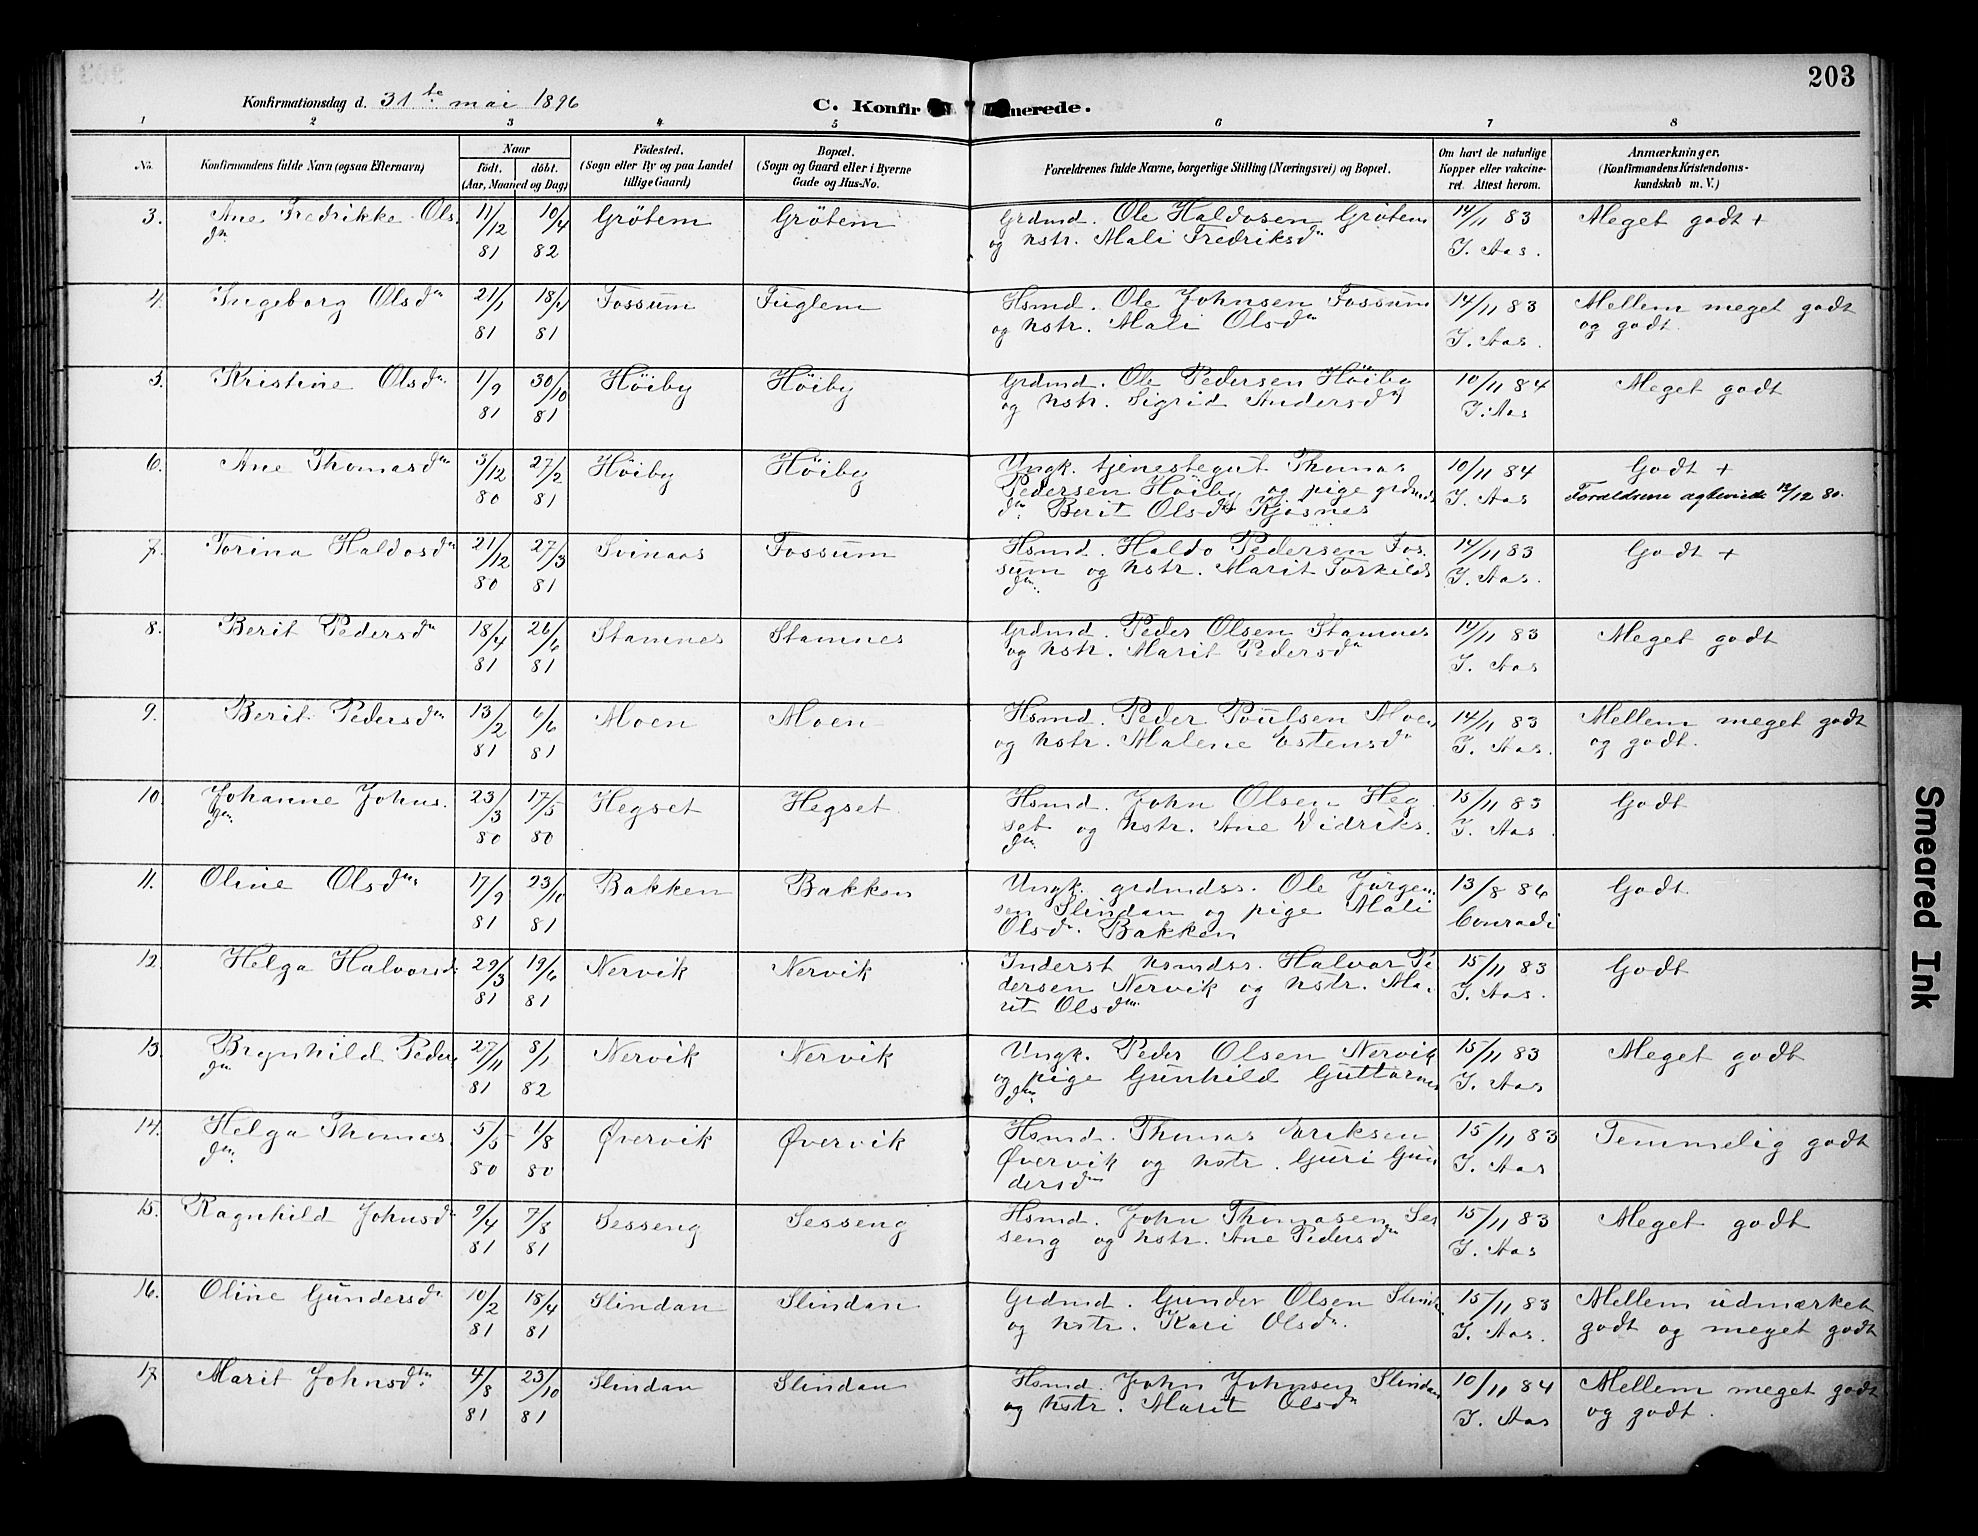 203
Konfirmationsdag d. 31te mai 1896
C. Konfir merede.
1 2 3 4 5 6 7 8
No. Konfirmandens fulde Navn (ogsaa Efternavn) Naar födt. döbt. (Aar, Maaned og Dag) Födested. (Sogn eller By og paa Landet tillige Gaard) Bopæl. (Sogn og Gaard eller i Byerne Gade og Hus-No. Forældrenes fulde Navne, borgerlige Stilling (Næringsvei) og Bopæl. Om havt de naturlige Kopper eller vakcineret. Attest herom. Anmærkninger. (Konfirmandens Kristendomskundskab m. V.)
3. Ane Fredrikke Ols. 11/12 10/4 Grötem Grötem Grdmd. Ole Haldosen Grötem 14/11 83 Meget godt +
dn 81 82 og hstr. Mali Fredriksdn J. Aas.
4. Ingeborg Olsdn 21/1 18/4 Fossum Fuglem Hsmd. Ole Johnsen Fossum 14/11 83 Mellem meget godt
81 81 og hstr. Mali Olsdn J. Aas. og godt.
5. Kristine Olsdn 1/9 30/10 Höiby Höiby Grdmd. Ole Pedersen Höiby 10/11 84 Meget godt
81 81 og hstr. Sigrid Andersdn J. Aas
6. Ane Thomasdn 3/12 27/2 Höiby Höiby Ungk. tjenestegut Thomas 10/11 84 Godt +
80 81 Pedersen Höiby og pige grdmds J. Aas Forældrene ægteviede 12/12 80.
dn. Berit Olsdt Kjösnes
7. Torina Haldosdn 21/12 27/3 Svinaas Fossum Hsmd. Haldo Pedersen Fos- 14/11 83 Godt +
80 81 sum og hstr. Marit Torkilds J. Aas.
dn.
8. Berit Pedersdn 18/4 26/6 Stamnes Stamnes Grdmd. Peder Olsen Stamnes 14/11 83 Meget godt
81 81 og hstr. Marit Pedersdn J. Aas
9. Berit Pedersdn 13/2 6/6 Moen Moen Hsmd. Peder Poulsen Moen 14/11 83 Mellem meget godt
81 81 og hstr. Malene Estensdn J. Aas. og godt.
10. Johanne Johns. 23/3 17/5 Hegset Hegset Hsmd. John Olsen Heg 15/11 83 Godt
dn. 80 80 set og hstr. Ane Vidriks. J. Aas.
dn.
11. Oline Olsdn. 17/9 23/10 Bakken Bakken Ungk. grdmdss. Ole Jörgen 13/8 86 Godt.
81 81 sen Slindan og pige Mali Conradi
Olsdn. Bakken
12. Helga Halvorsd. 29/3 19/6 Nervik Nervik Inderst hsmdss. Halvor Pe 15/11 83 Godt
81 81 dersen Nervik og hstr. Ma- J. Aas.
rit Olsdn.
13. Brynhild Peders 27/11 8/1 Nervik Nervik Ungk. Peder Olsen Nervik 15/11 83 Meget godt
dn 81 82 og pige Gunhild Guttorms J. Aas
dn.
14. Helga Thomas 5/5 1/8 Øvervik Øvervik Hsmd. Thomas Eriksen 15/11 83 Temmelig godt
dn. 80 80 Øvervik og hstr. Guri Gun J. Aas
dersdn
15. Ragnhild Johnsdn 9/4 7/8 Sesseng Sesseng Hsmd. John Thomasen Ses 15/11 83 Meget godt
81 81 seng og hstr. Ane Pedersdn J. Aas
16. Oline Gundersdn. 10/2 18/4 Slindan Slindan Grdmd. Gunder Olsen Slinda 15/11 83 Mellem udmærket
81 81 og hstr. Kari Olsdn. J. Aas. godt og meget godt
17 Marit Johnsdn. 4/8 23/10 Slindan Slindan Hsmd. John Johnsen Slindan 10/11 84 Mellem meget godt
81 81 og hstr. Marit Olsdn J. Aas og godt.
Smeared Ink